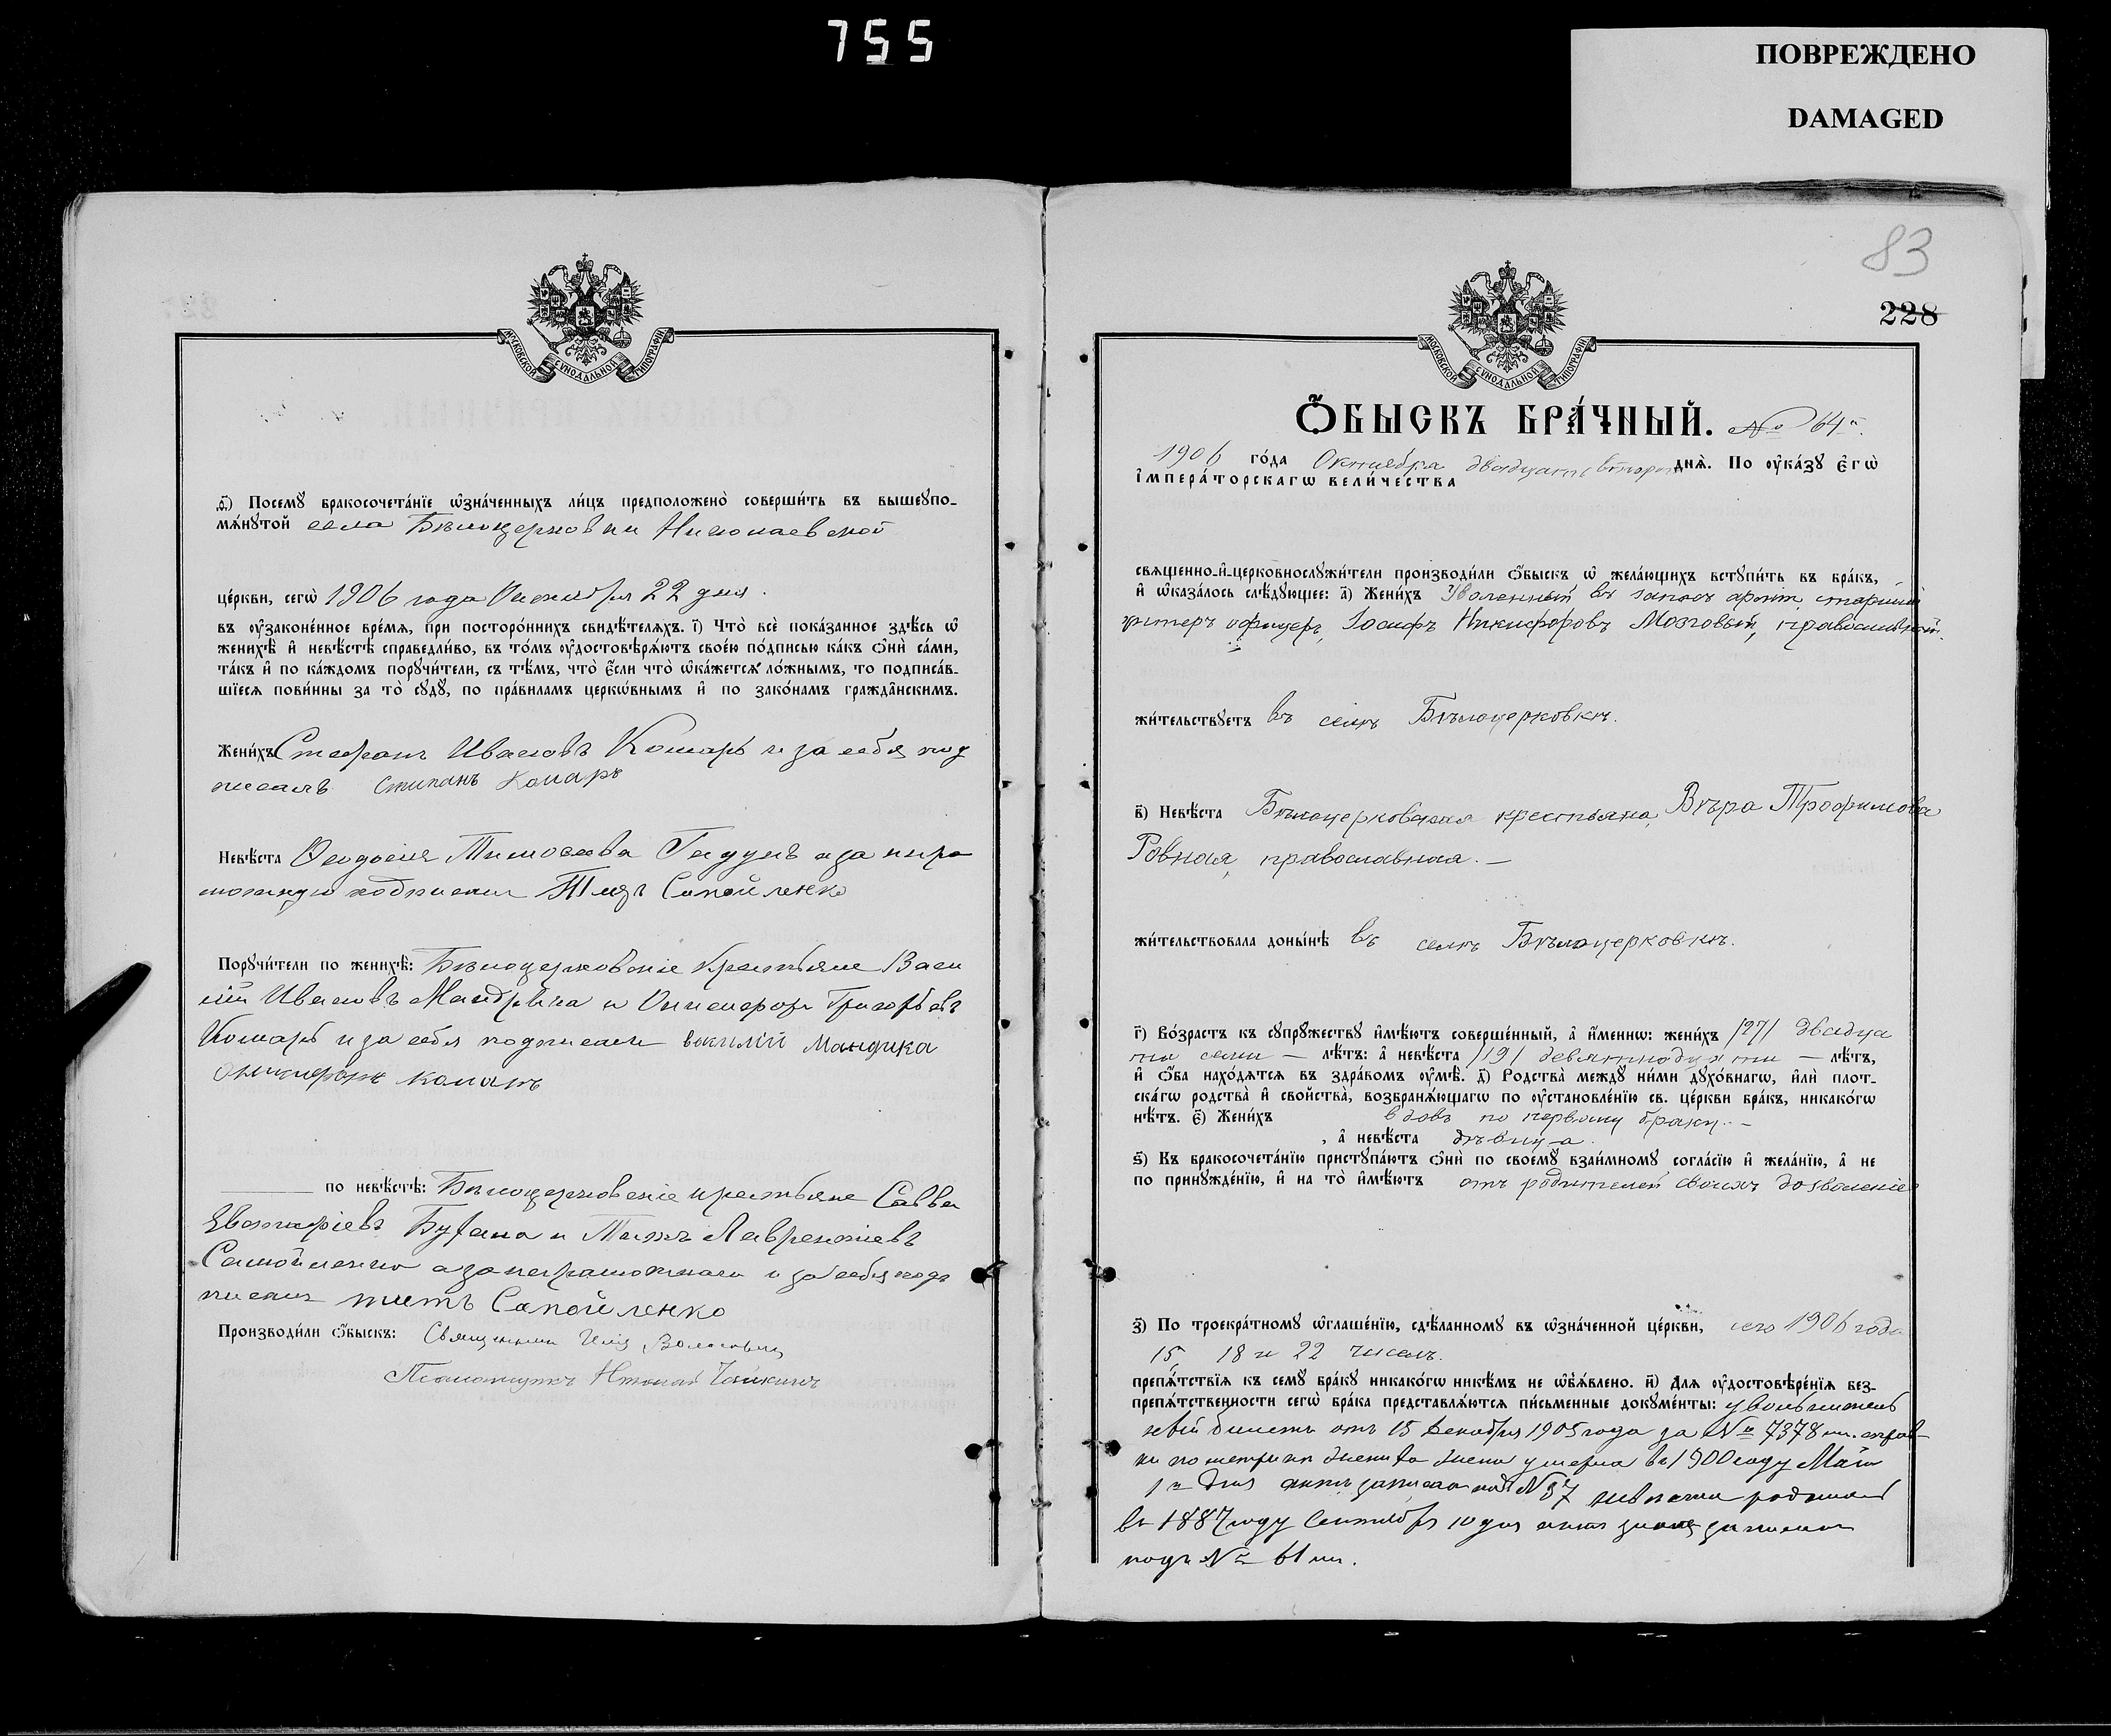 755
ПОВРЕЖДЕНО
DAMAGED
МОСКОВСКОЙ СѴНОДАЛЬНОЙ ТИПОГРАФІИ
ѳ҃) Посемꙋ бракосочета́нїе ѡ҆зна́ченныхъ ли́цъ предположено̀ соверши́ть въ вышеꙋпо-
мѧ́нꙋтой села Бѣлоцерковки Николаевской
це́ркви, сегѡ̀ 1906 года Октября 22 дня.
въ ᲂу҆зако́ненное вре́мѧ, при посторо́ннихъ свидѣ́телѧхъ. і҃) Что̀ всѐ пока́занное здѣ́сь ѡ҆
женихѣ̀ и҆ невѣ́стѣ справедли́во, въ то́мъ ᲂу҆достовѣрѧ́ютъ свое́ю по́дписью ка́къ ѻ҆нѝ са́ми,
та́къ и҆ по ка́ждомъ порꙋчи́тели, съ тѣ́мъ, что̀ є҆́сли что̀ ѡ҆ка́жетсѧ ло́жнымъ, то̀ подписа́в-
шїесѧ пови́нны за то̀ сꙋдꙋ̀, по пра́виламъ церкѡ́внымъ и҆ по зако́намъ гражда́нскимъ.
Жени́хъ Стефанъ Ивановъ Комарь и за себя под
писалъ Стипанъ Комаръ
Невѣ́ста Ѳеодосія Тимоѳеева а за негра
мотную подписалъ Титъ Самойленко
Порꙋчи́тели по женихѣ̀: Бѣлоцерковскіе крестьяне Васи
лій Ивановъ Мандрыка и Онисифоръ Григорьевъ
Комарь и за себя подписали Василій Мандрика
Комаръ
по невѣ́стѣ: Бѣлоцерковскіе крестьяне Савва
Евстафіевъ и Титъ Лаврентіевъ
Самойленко а за неграмотнаго и за себя под
писалъ Титъ Самойленко
Производи́ли ѻ҆́быскъ: Священникъ Илія
Псаломщикъ Николай
83
228
МОСКОВСКОЙ СѴНОДАЛЬНОЙ ТИПОГРАФІИ
Ѻ҆́БЫСКЪ БРА́ЧНЫЙ. № 64й.
1906 го́да Октября двадцать второго днѧ̀. По ᲂу҆ка́зꙋ є҆гѡ̀
і҆мпера́торскагѡ вели́чества
свѧщенно-и҆-церковнослꙋжи́тели производи́ли ѻ҆́быскъ ѡ҆ жела́ющихъ встꙋпи́ть въ бра́къ,
и҆ ѡ҆каза́лось слѣ́дꙋющее: а҃) Жени́хъ Уволенный въ запасъ арміи, старшій
унтеръ офицеръ, Іосифъ Никифоровъ Мозговый, православный.
жи́тельствꙋетъ въ селѣ Бѣлоцерковкѣ.
в҃) Невѣ́ста Бѣлоцерковская крестьянка, Вѣра Трофимова
Ровная, православная.—
жи́тельствовала доны́нѣ въ селѣ Бѣлоцерковкѣ.
г҃) Во́зрастъ къ сꙋпрꙋжествꙋ и҆мѣ́ютъ соверше́нный, а҆ и҆́менно: жени́хъ /27/ двадца
ти семи — лѣ́тъ: а҆ невѣ́ста /19/ девятнадцати — лѣ́тъ,
и҆ ѻ҆́ба нахо́дѧтсѧ въ здра́вомъ ᲂу҆мѣ̀. д҃) Родства̀ междꙋ̀ ни́ми дꙋхо́внагѡ, и҆лѝ пло́т-
скагѡ родства̀ и҆ сво́йства, возбранѧ́ющагѡ по ᲂу҆становле́нїю св. це́ркви бра́къ, никако́гѡ
нѣ́тъ. є҃) Жени́хъ вдовъ по первому браку.—
, а҆ невѣ́ста дѣвица.
ѕ҃) Къ бракосочета́нїю пристꙋпа́ютъ ѻ҆нѝ по своемꙋ̀ взаи́мномꙋ согла́сїю и҆ жела́нїю, а҆ не
по принꙋжде́нїю, и҆ на то̀ и҆мѣ́ютъ отъ родителей своихъ дозволеніе
з҃) По троекра́тномꙋ ѡ҆глаше́нїю, сдѣ́ланномꙋ въ ѡ҆зна́ченной це́ркви, сего 1906 года
15, 18 и 22 чиселъ.
препѧ́тствїѧ къ семꙋ̀ бра́кꙋ никако́гѡ никѣ́мъ не ѡ҆б̾ѧ́влено. и҃) Длѧ ᲂу҆достовѣре́нїѧ без-
препѧ́тственности сегѡ̀ бра́ка представлѧ́ютсѧ пи́сьменные докꙋме́нты: увольнитель
ный билетъ отъ 15 Декабря 1905 года за № 7378 справ
ки по метрикѣ жениха жена умерла въ 1900 году Мая
1го дня актъ записанъ подъ № 37 невѣста родилась
въ 1887 году Сентября 10 дня актъ записанъ
подъ № 61